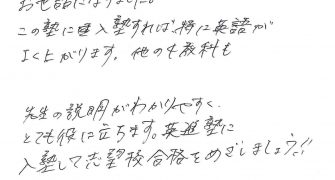 お世話になりました。
この塾に入塾すれば、特に英語が
よく上がります。他の4教科も
先生の説明がわかりやすく
とても役に立ちます。英進塾に
入塾して志望校合格をめざしましょう!!